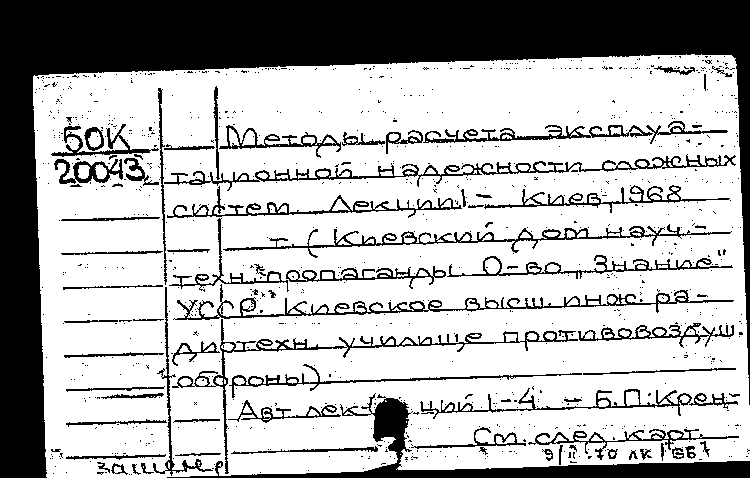 БОК
20043
Методы расчета эксплуа-
тационной надежности сложных
систем Лекции1 - Киев, 1968
т. (Киевский дом науч.-
техн. пропаганды. О-во „Знание"
УССР. Киевское высш. инж. ра-
диотехн. училище противовоздуш.
обороны).
Авт. лекций 1-4. - Б.П. Крен-
См. след. карт.
9/II-70 лк